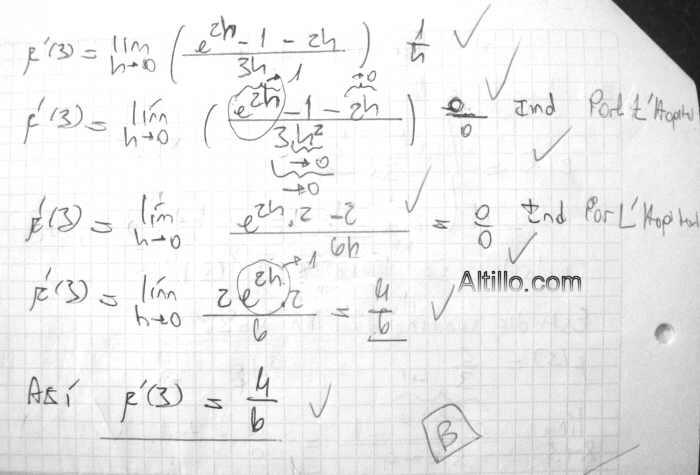 f'(3) = lím h→0 ( (e^2h - 1 - 2h) / 3h ) 1/h ✓
f'(3) = lím h→0 ( (e^2h →1 - 1 - 2h →0) / 3.h^2 →0 →0 ) 0/0 Ind Por L'Hopital ✓
f'(3) = lím h→0 (e^2h.2 - 2) / 6h = 0/0 Ind Por L'Hopital ✓
f'(3) = lím h→0 (2e^2h →1 .2) / 6 = 4/6 ✓
Altillo.com
Así f'(3) = 4/6 ✓
B